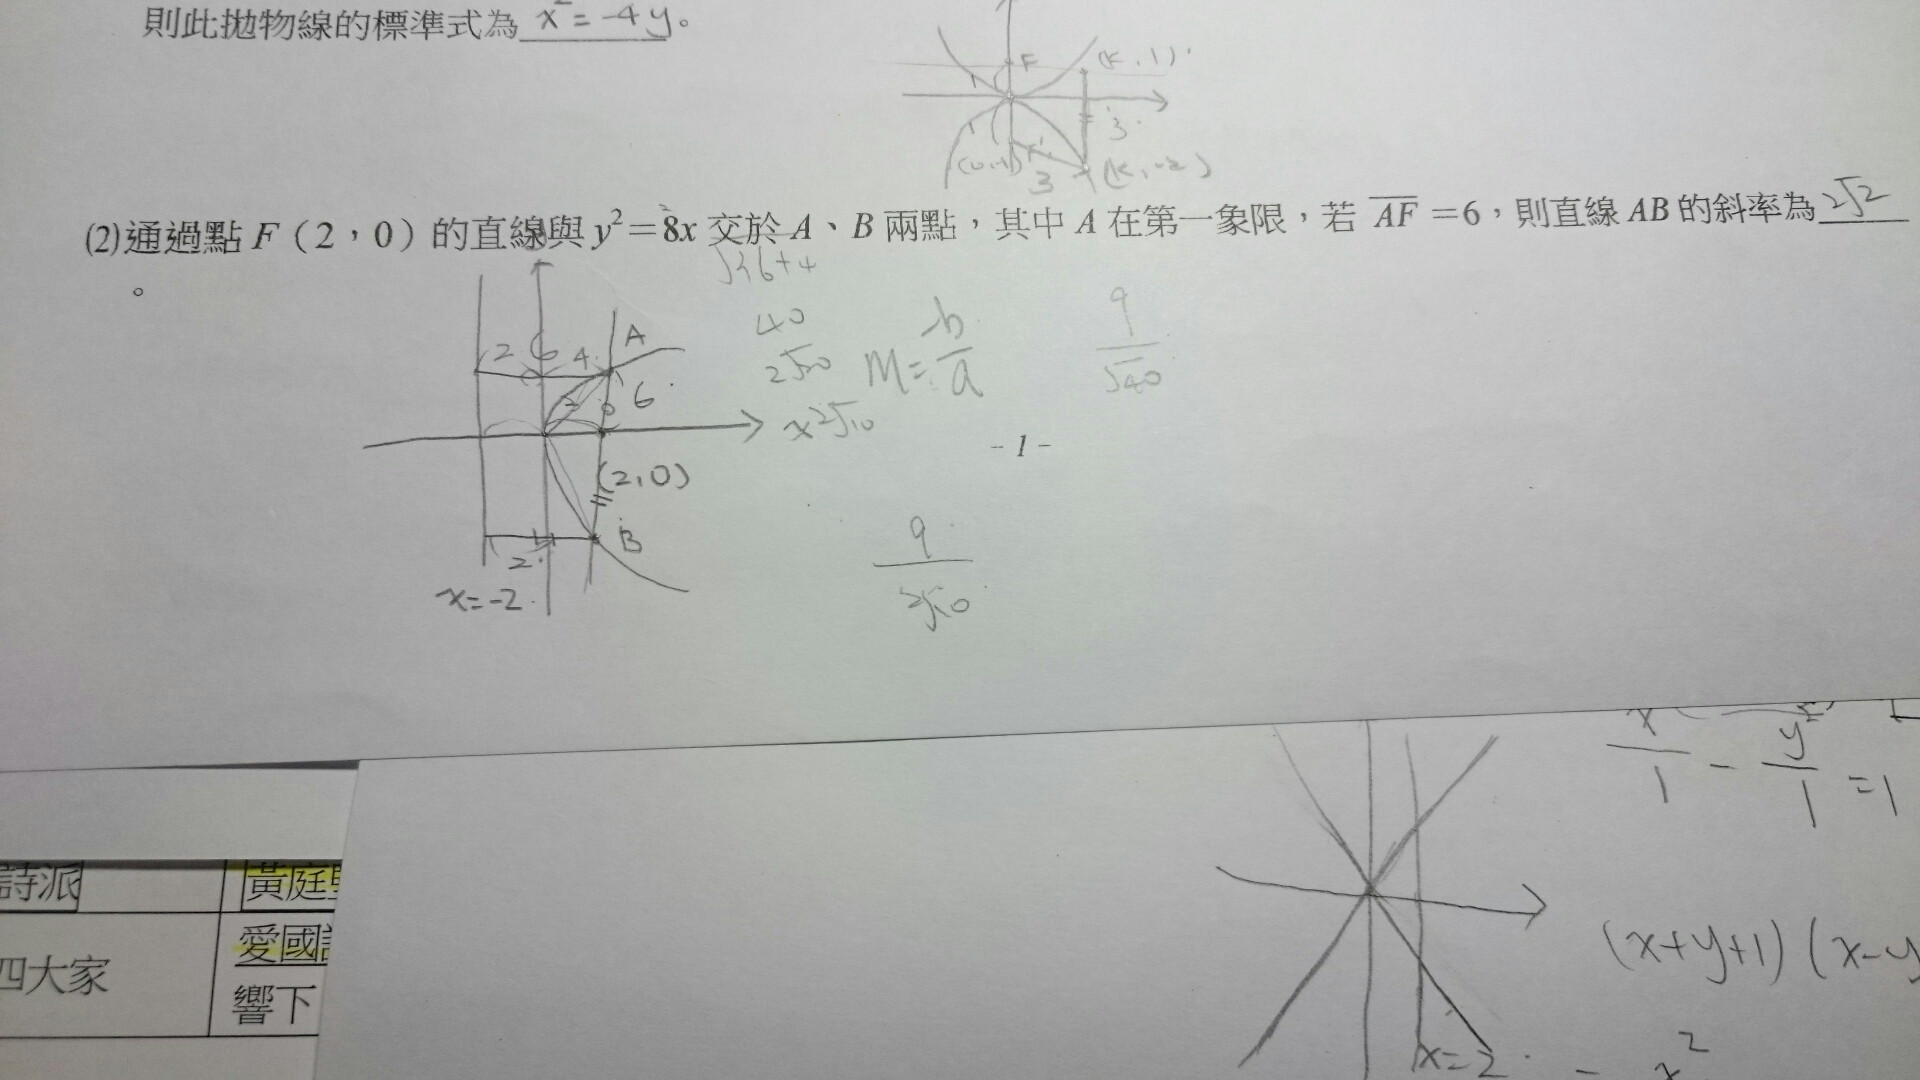 則此拋物線的標準式為 x²=-4y。
F
(k,1)
1
1
3
(0,-1)
3
(k,-2)
(2)通過點 F(2,0)的直線與 y²=8x 交於 A、B 兩點,其中 A 在第一象限,若 AF=6,則直線 AB 的斜率為 2√2
。
√36+4
2 6 4 A
40
2√10
M=b/a
9/√40
6
x 2√10
- 1 -
(2,0)
B
2
x=-2
9/2√10
x/1 - y²/1 =1
詩派
黃庭
四大家
愛國
響下
(x+y+1)(x-y
x=2
- x²